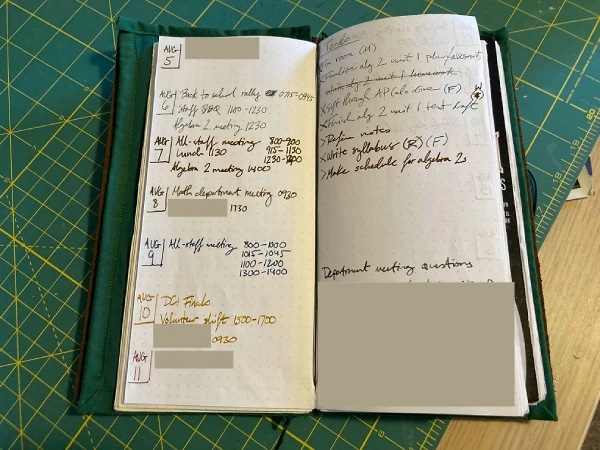 AUG
5
AUG
6
Back to school rally 0715-0945
Staff 1100-1230
Algebra 2 meeting 1230
AUG
7
All-staff meeting 800-900
Lunch 1130 915-1130
1230-1400
Algebra 2 meeting 1400
AUG
8
Math department meeting 0930
1730
AUG
9
All-staff meeting 800-1000
1015-1045
1100-1200
1300-1400
AUG
10
DCI Finals
Volunteer shift 1500-1700
0930
AUG
11
room (M)
Finalize alg 2 unit 1 plan/assessment
alg 2 unit 1 homework
Sift through AP Calc drive (F)
Finish alg 2 unit 1 test draft
>Refine notes
Write syllabus (F)
>Make schedule for algebra 2s
Department meeting questions